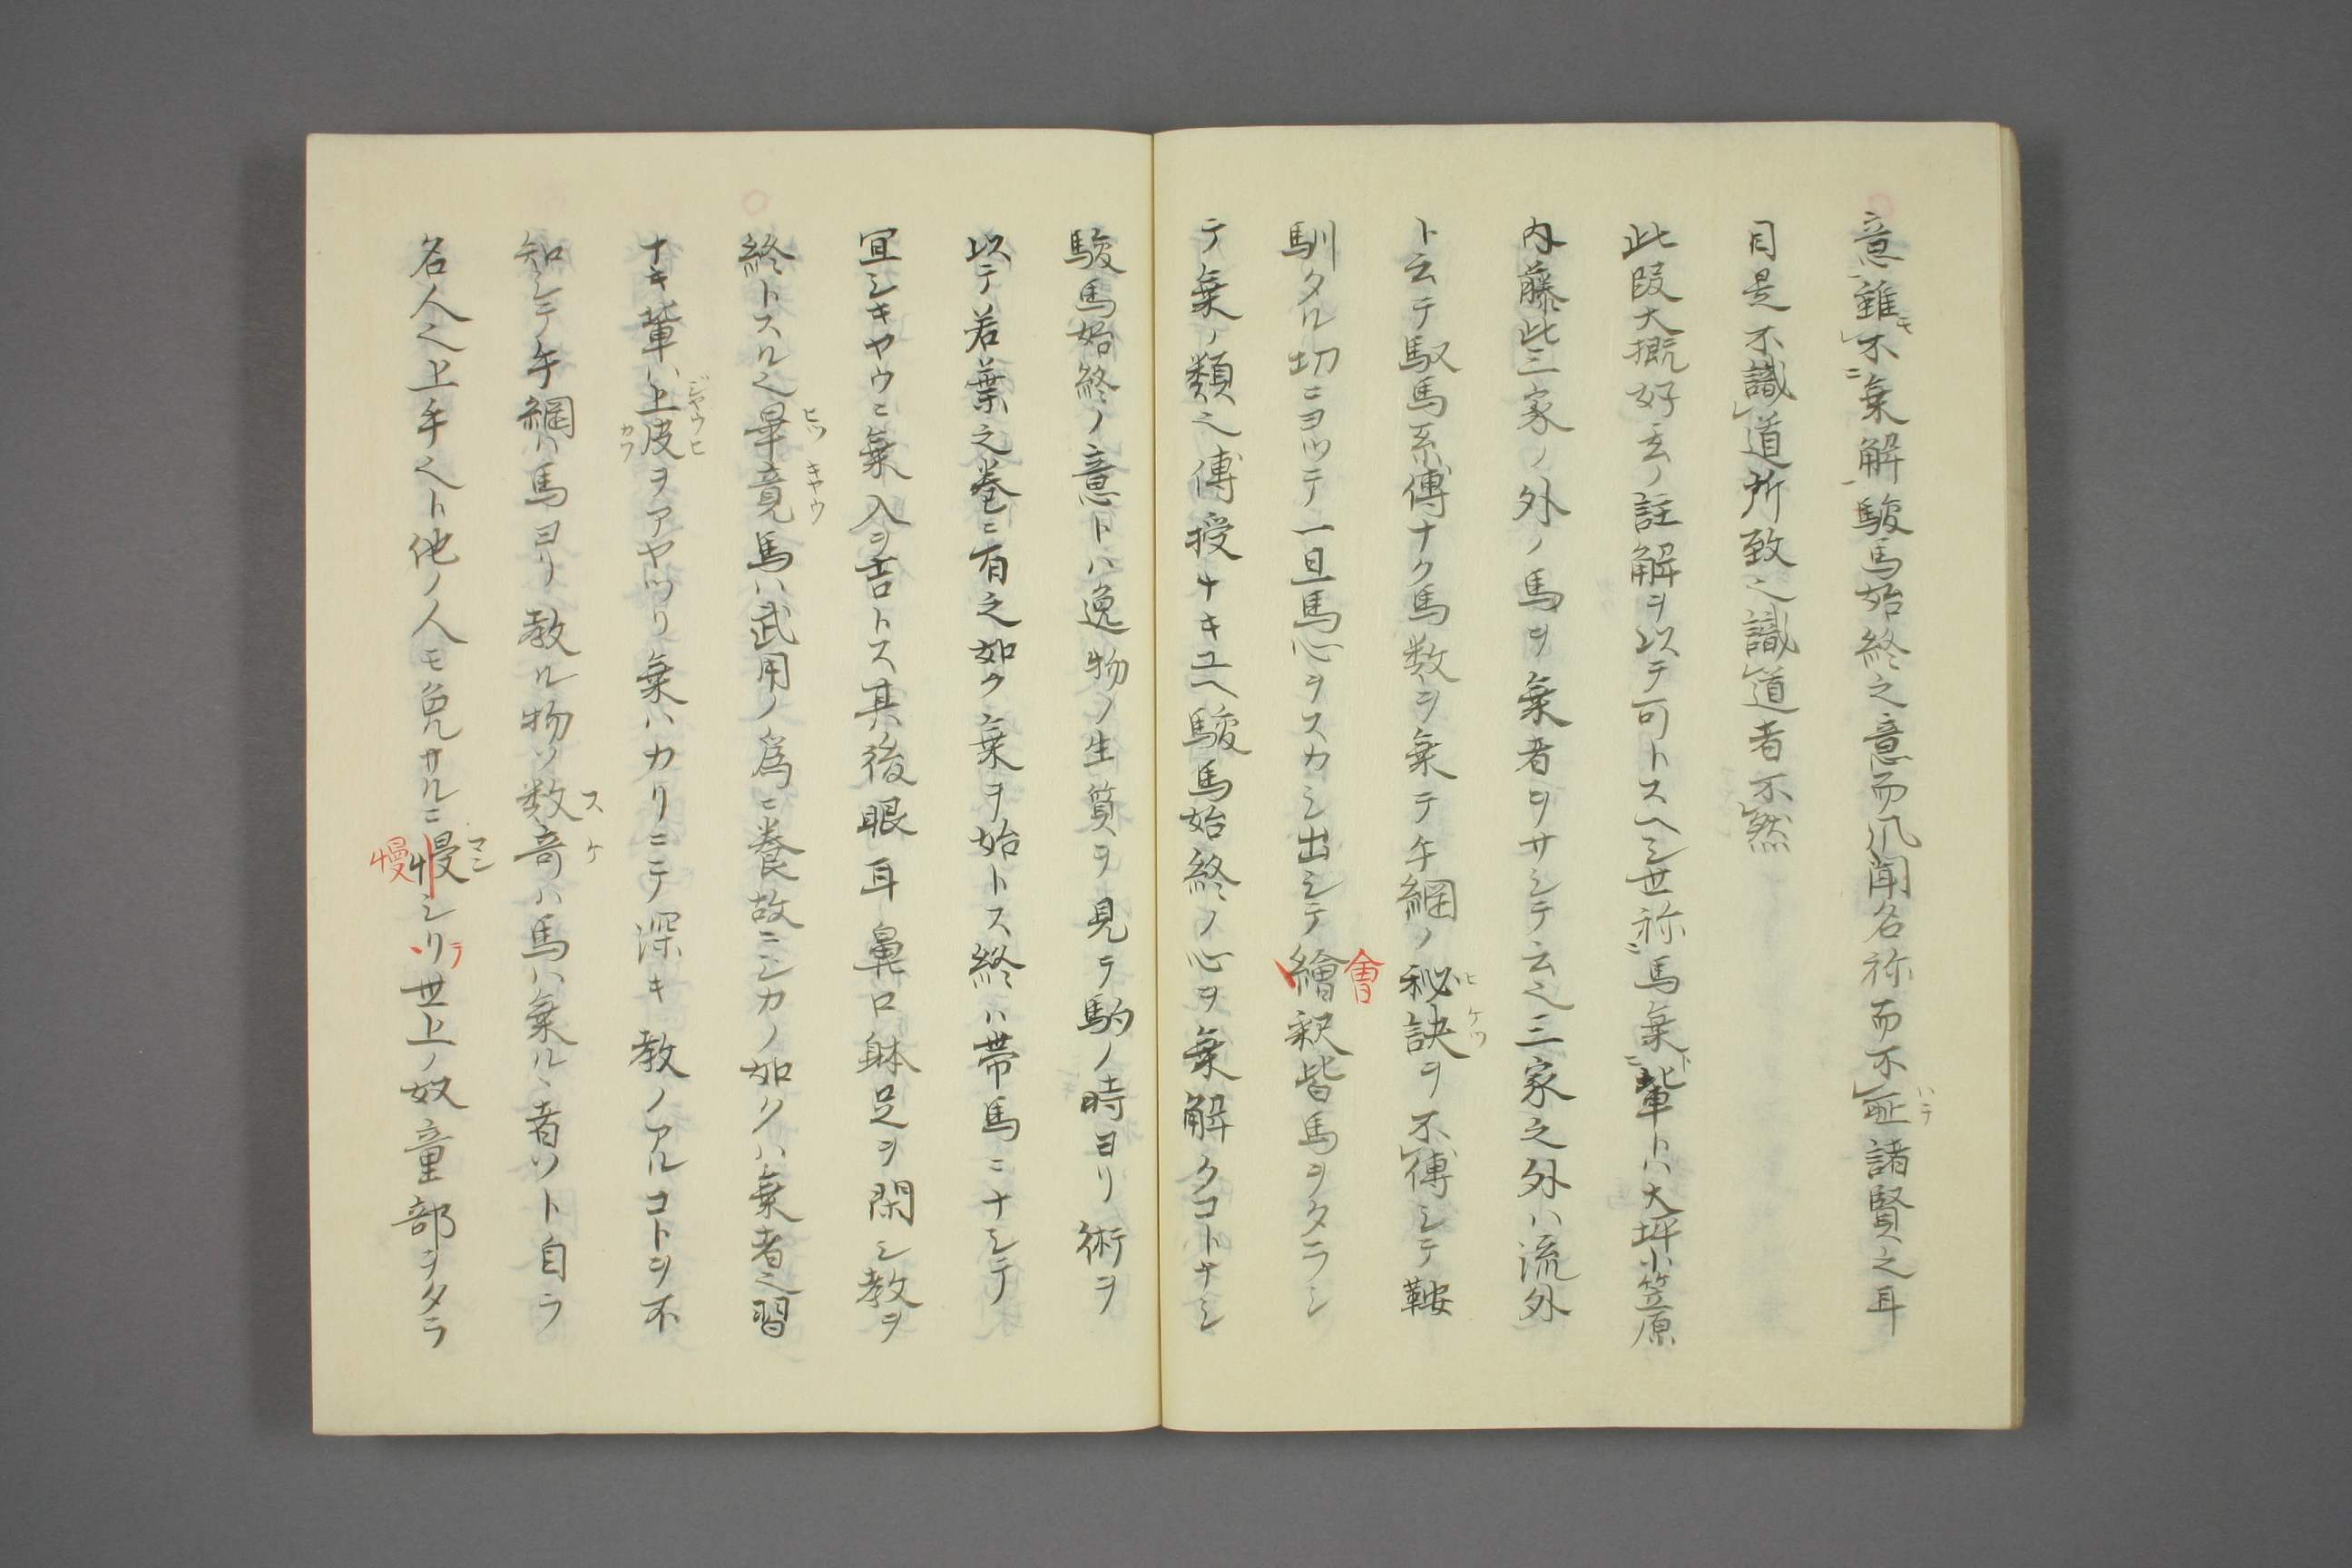 意雖モ不ニ乗解駿馬始終之意而汎聞名称而不恥ハテ諸賢之耳
目是不識道所致之識道者不然
此段大概好玄ノ註解ヲ以テ可トスヘシ世称ニ馬乗ニ輩トハ大坪小笠原
内藤此三家ノ外ノ馬ヲ乗者ヲサシテ云之三家之外ハ流外
ト云テ馭馬系傳ナク馬数ヲ乗テ手綱ノ秘訣ヒケツヲ不傳シテ鞍
馴タル切ニヨツテ一旦馬心ヲスカシ出シテ繪會釈皆馬ヲタラシ
テ乗ノ類之傳授ナキユヘ駿馬始終ノ心ヲ乗解クコトナシ
駿馬始終ノ意トハ逸物ノ生質ヲ見テ駒ノ時ヨリ術ヲ
以テ若葉之巻ニ有之如ク乗ヲ始トス終ハ帯馬ニナシテ
冝シキヤウニ乗入ヲ吉トス其後眼耳鼻口躰足ヲ閑シ教ヲ
終トスル之畢竟ヒツキヤウ馬ハ武用ノ為ニ養故ニシカノ如クハ乗者之習
ナキ輩ハ上皮ジヤウヒカワヲアヤツリ乗ハカリニテ深キ教ノアルコトヲ不
知シテ手綱ハ馬ヨリ教ル物ソ数竒スケハ馬ハ乗ルヽ者ソト自ラ
名人之上手之ト他ノ人モ免サルニ慢マン慢シリラ世上ノ奴童部ヲタラ